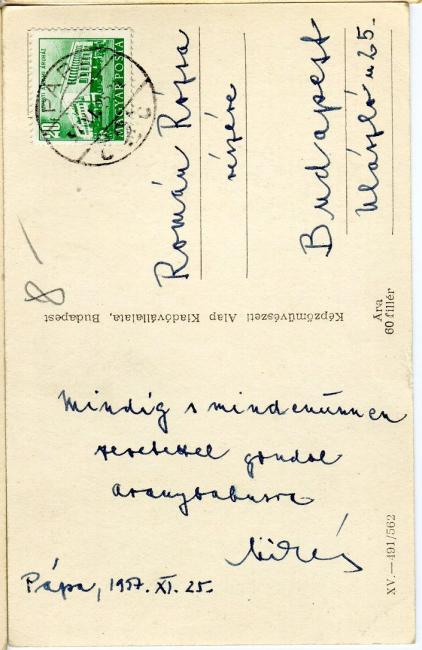 MAGYAR POSTA
PÁPA
Román Rózsa
részére
Budapest
Ulászló u 25.
8-
Képzőművészeti Alap Kiadóvállalata, Budapest
Ára
60 fillér
Mindig s mindenünnen
szeretettel gondol
aranybabusra
Pápa, 1957. XI. 25.
XV.—491/562